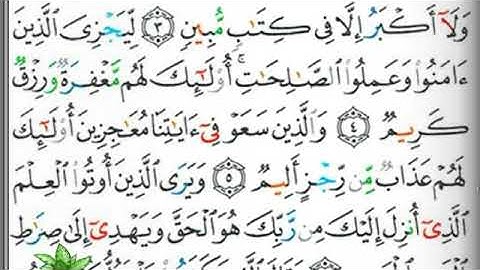 وَلَآ أَكْبَرُ إِلَّا فِى كِتَٰبٍ مُّبِينٍ ٣ لِّيَجْزِىَ ٱلَّذِينَ
ءَامَنُوا۟ وَعَمِلُوا۟ ٱلصَّٰلِحَٰتِ ۚ أُو۟لَٰٓئِكَ لَهُم مَّغْفِرَةٌ وَرِزْقٌ
كَرِيمٌ ٤ وَٱلَّذِينَ سَعَوْ فِىٓ ءَايَٰتِنَا مُعَٰجِزِينَ أُو۟لَٰٓئِكَ
لَهُمْ عَذَابٌ مِّن رِّجْزٍ أَلِيمٌ ٥ وَيَرَى ٱلَّذِينَ أُوتُوا۟ ٱلْعِلْمَ
ٱلَّذِىٓ أُنزِلَ إِلَيْكَ مِن رَّبِّكَ هُوَ ٱلْحَقَّ وَيَهْدِىٓ إِلَىٰ صِرَٰطِ